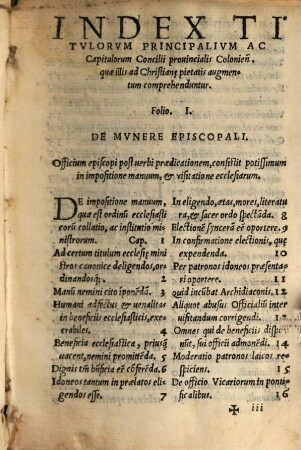 INDEX TI
TVLORVM PRINCIPALIVM AC
Capitulorum Concilii prouincialis Colonieñ.
que illis ad Christianę pietatis augmen-
tum comprehenduntur.
Folio. I.
DE MVNERE EPISCOPALI.
Officium episcopi post uerbi prædicationem, consistit potissimum
in impositione manuum, & uisitatione ecclesiarum.
DE impositione manuum,
quæ est ordinũ ecclesiasti
corũ collatio, ac institutio mi
nistrorum. Cap. 1
Ad certum titulum ecclesię mini
stros canonice deligendos, or
dinandosq́;. 2
Manũ nemini cito ĩponẽdã. 3
Humani adfectus & uenalitas
in beneficiis ecclesiasticis, exe-
crabiles. 4
Beneficia ecclesiastica, priusq̃
uacent, nemini promittẽda. 5
Dignis tm̃ bñficia eẽ cõferẽda. 6
Idoneos tantum in prælatos eli
gendos esse. 7
In eligendo, ætas, mores, literatu
ra, & sacer ordo spectãda. 8
Electionẽ syncerã eẽ oportere. 9
In confirmatione electionis, quę
expendenda. 10
Per patronos idoneos præsenta-
ri oportere. 11
quid incũbat Archidiaconis. 12
Aliquot abusus Officialiũ inter
uisitandum corrigendi. 13
Omnes qui de beneficiis dispo-
nũt, sui officii admonẽdi. 14
Moderatio patronos laicos re-
spiciens. 15
De officio Vicariorum in ponti-
ficalibus. 16
✠ iii